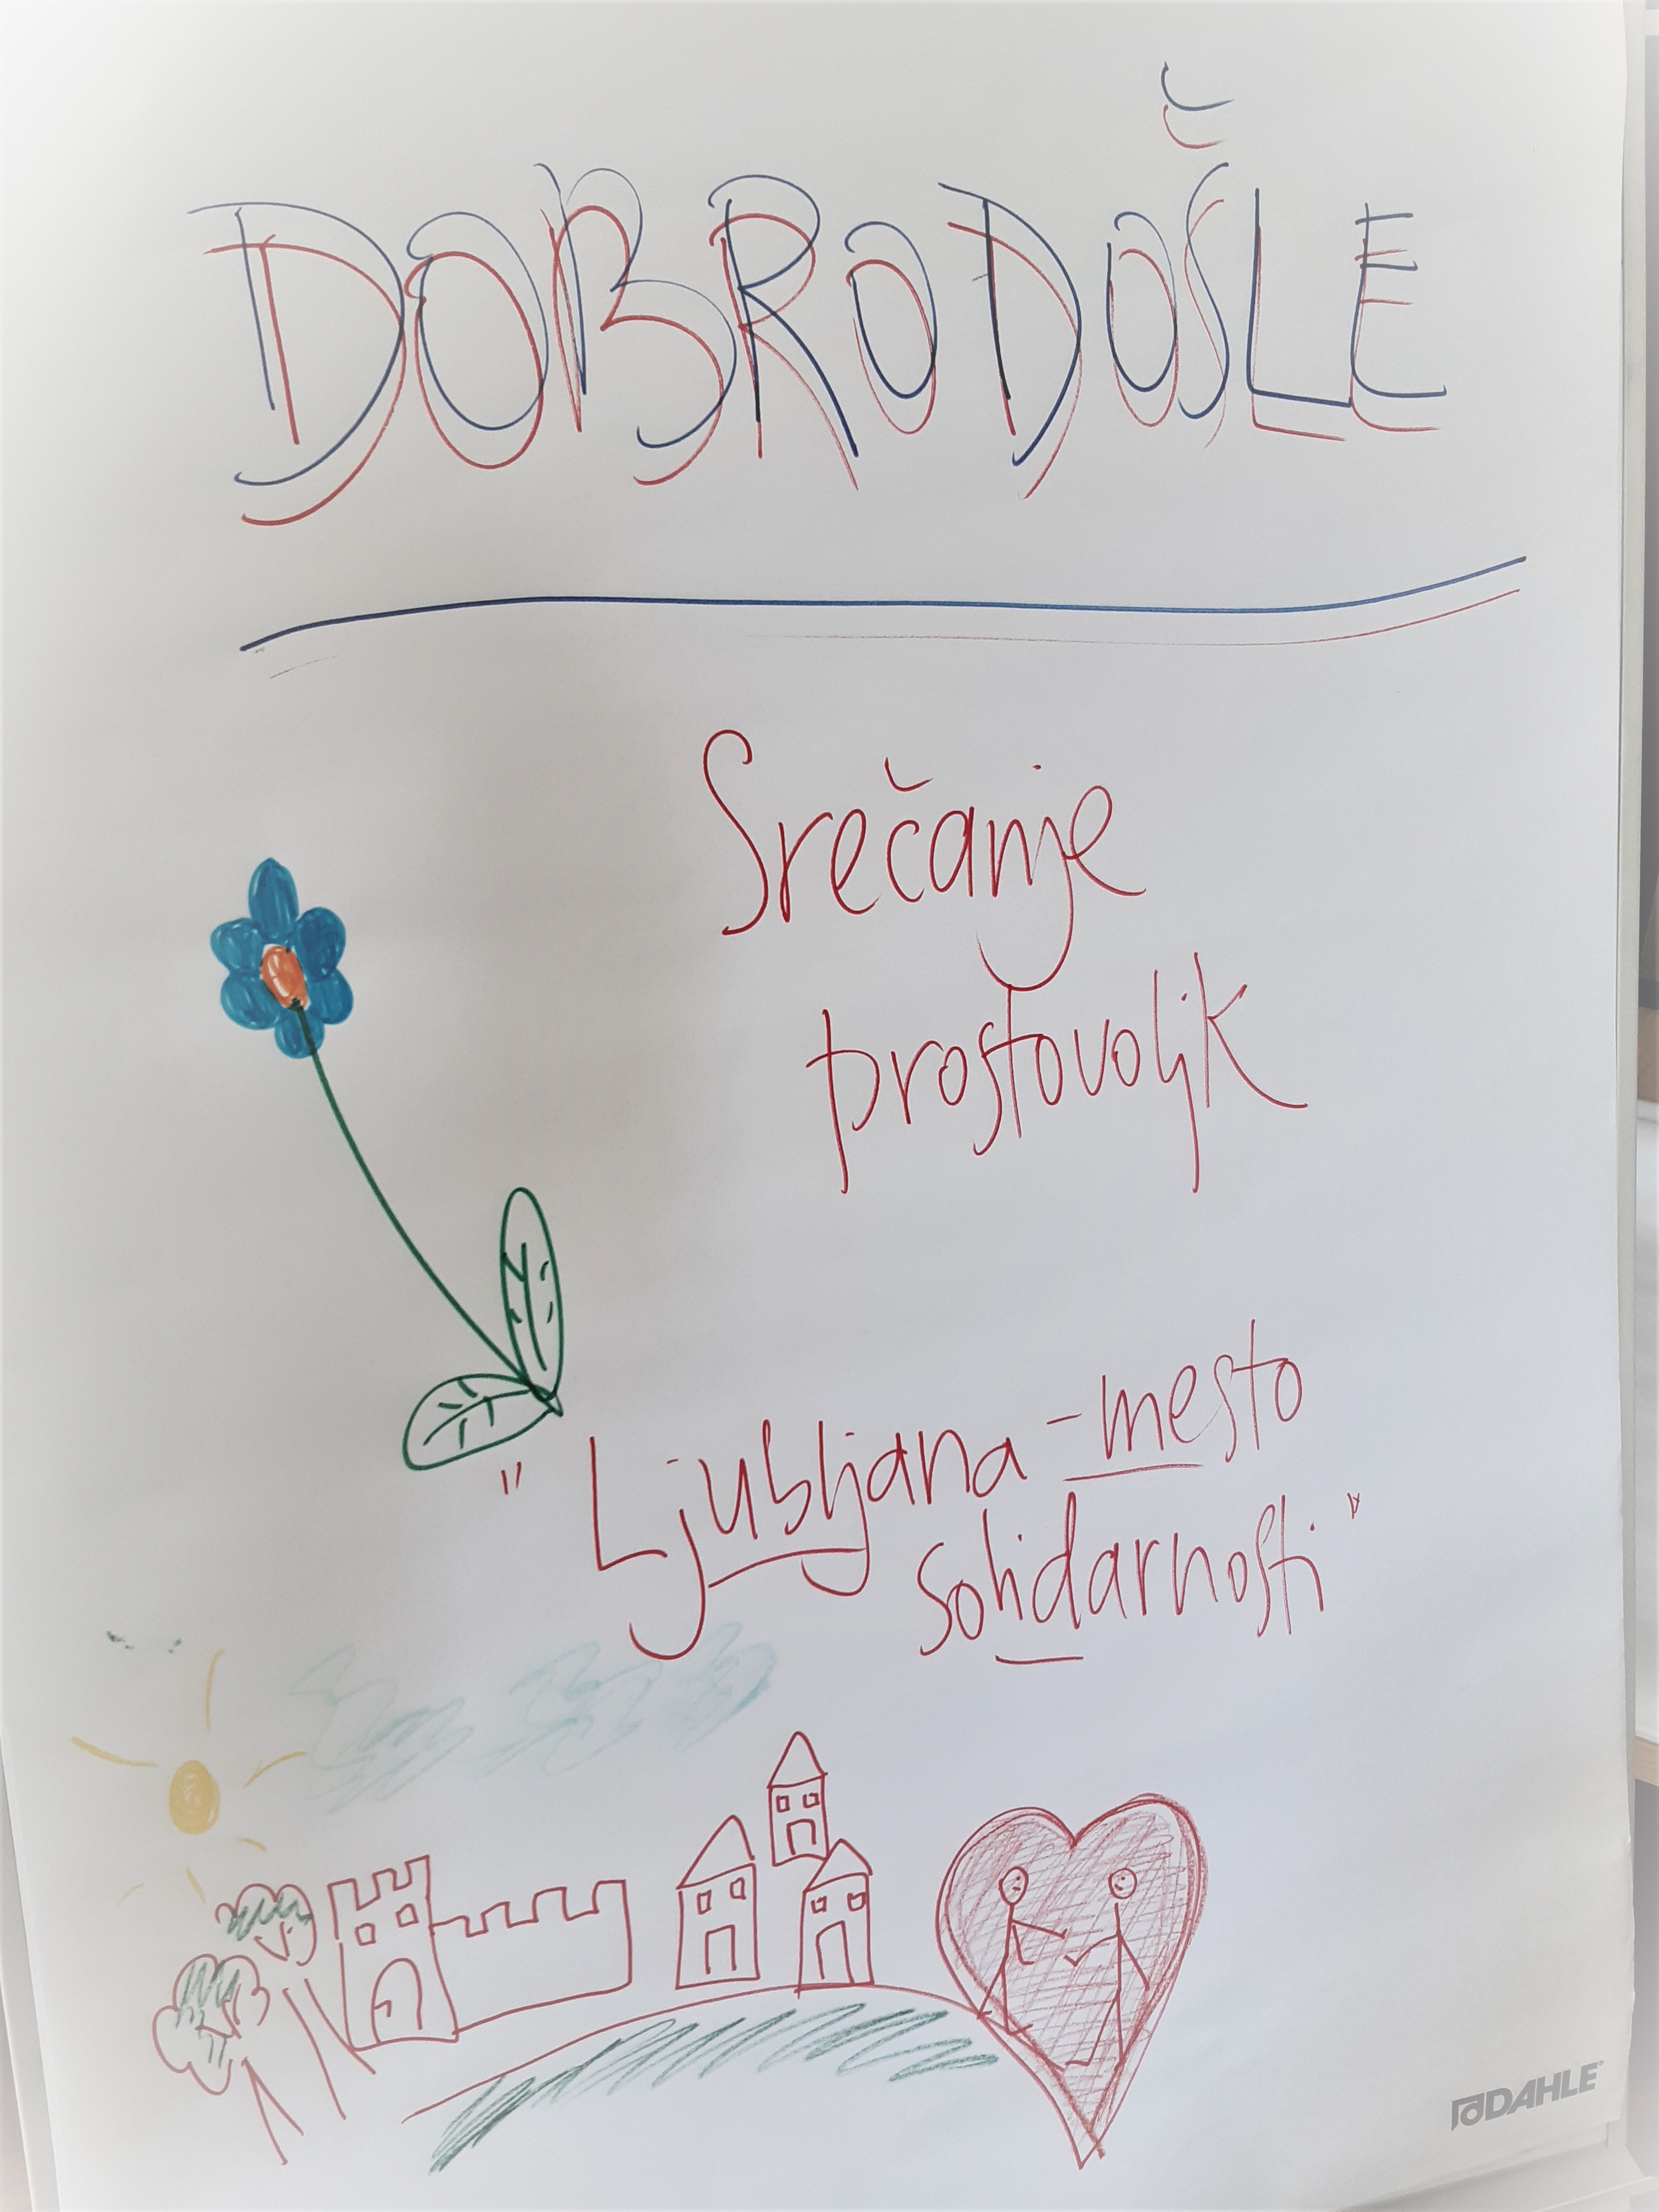 DOBRODOŠLE
Srečanje
prostovoljk
"Ljubljana - mesto
solidarnosti"
DAHLE